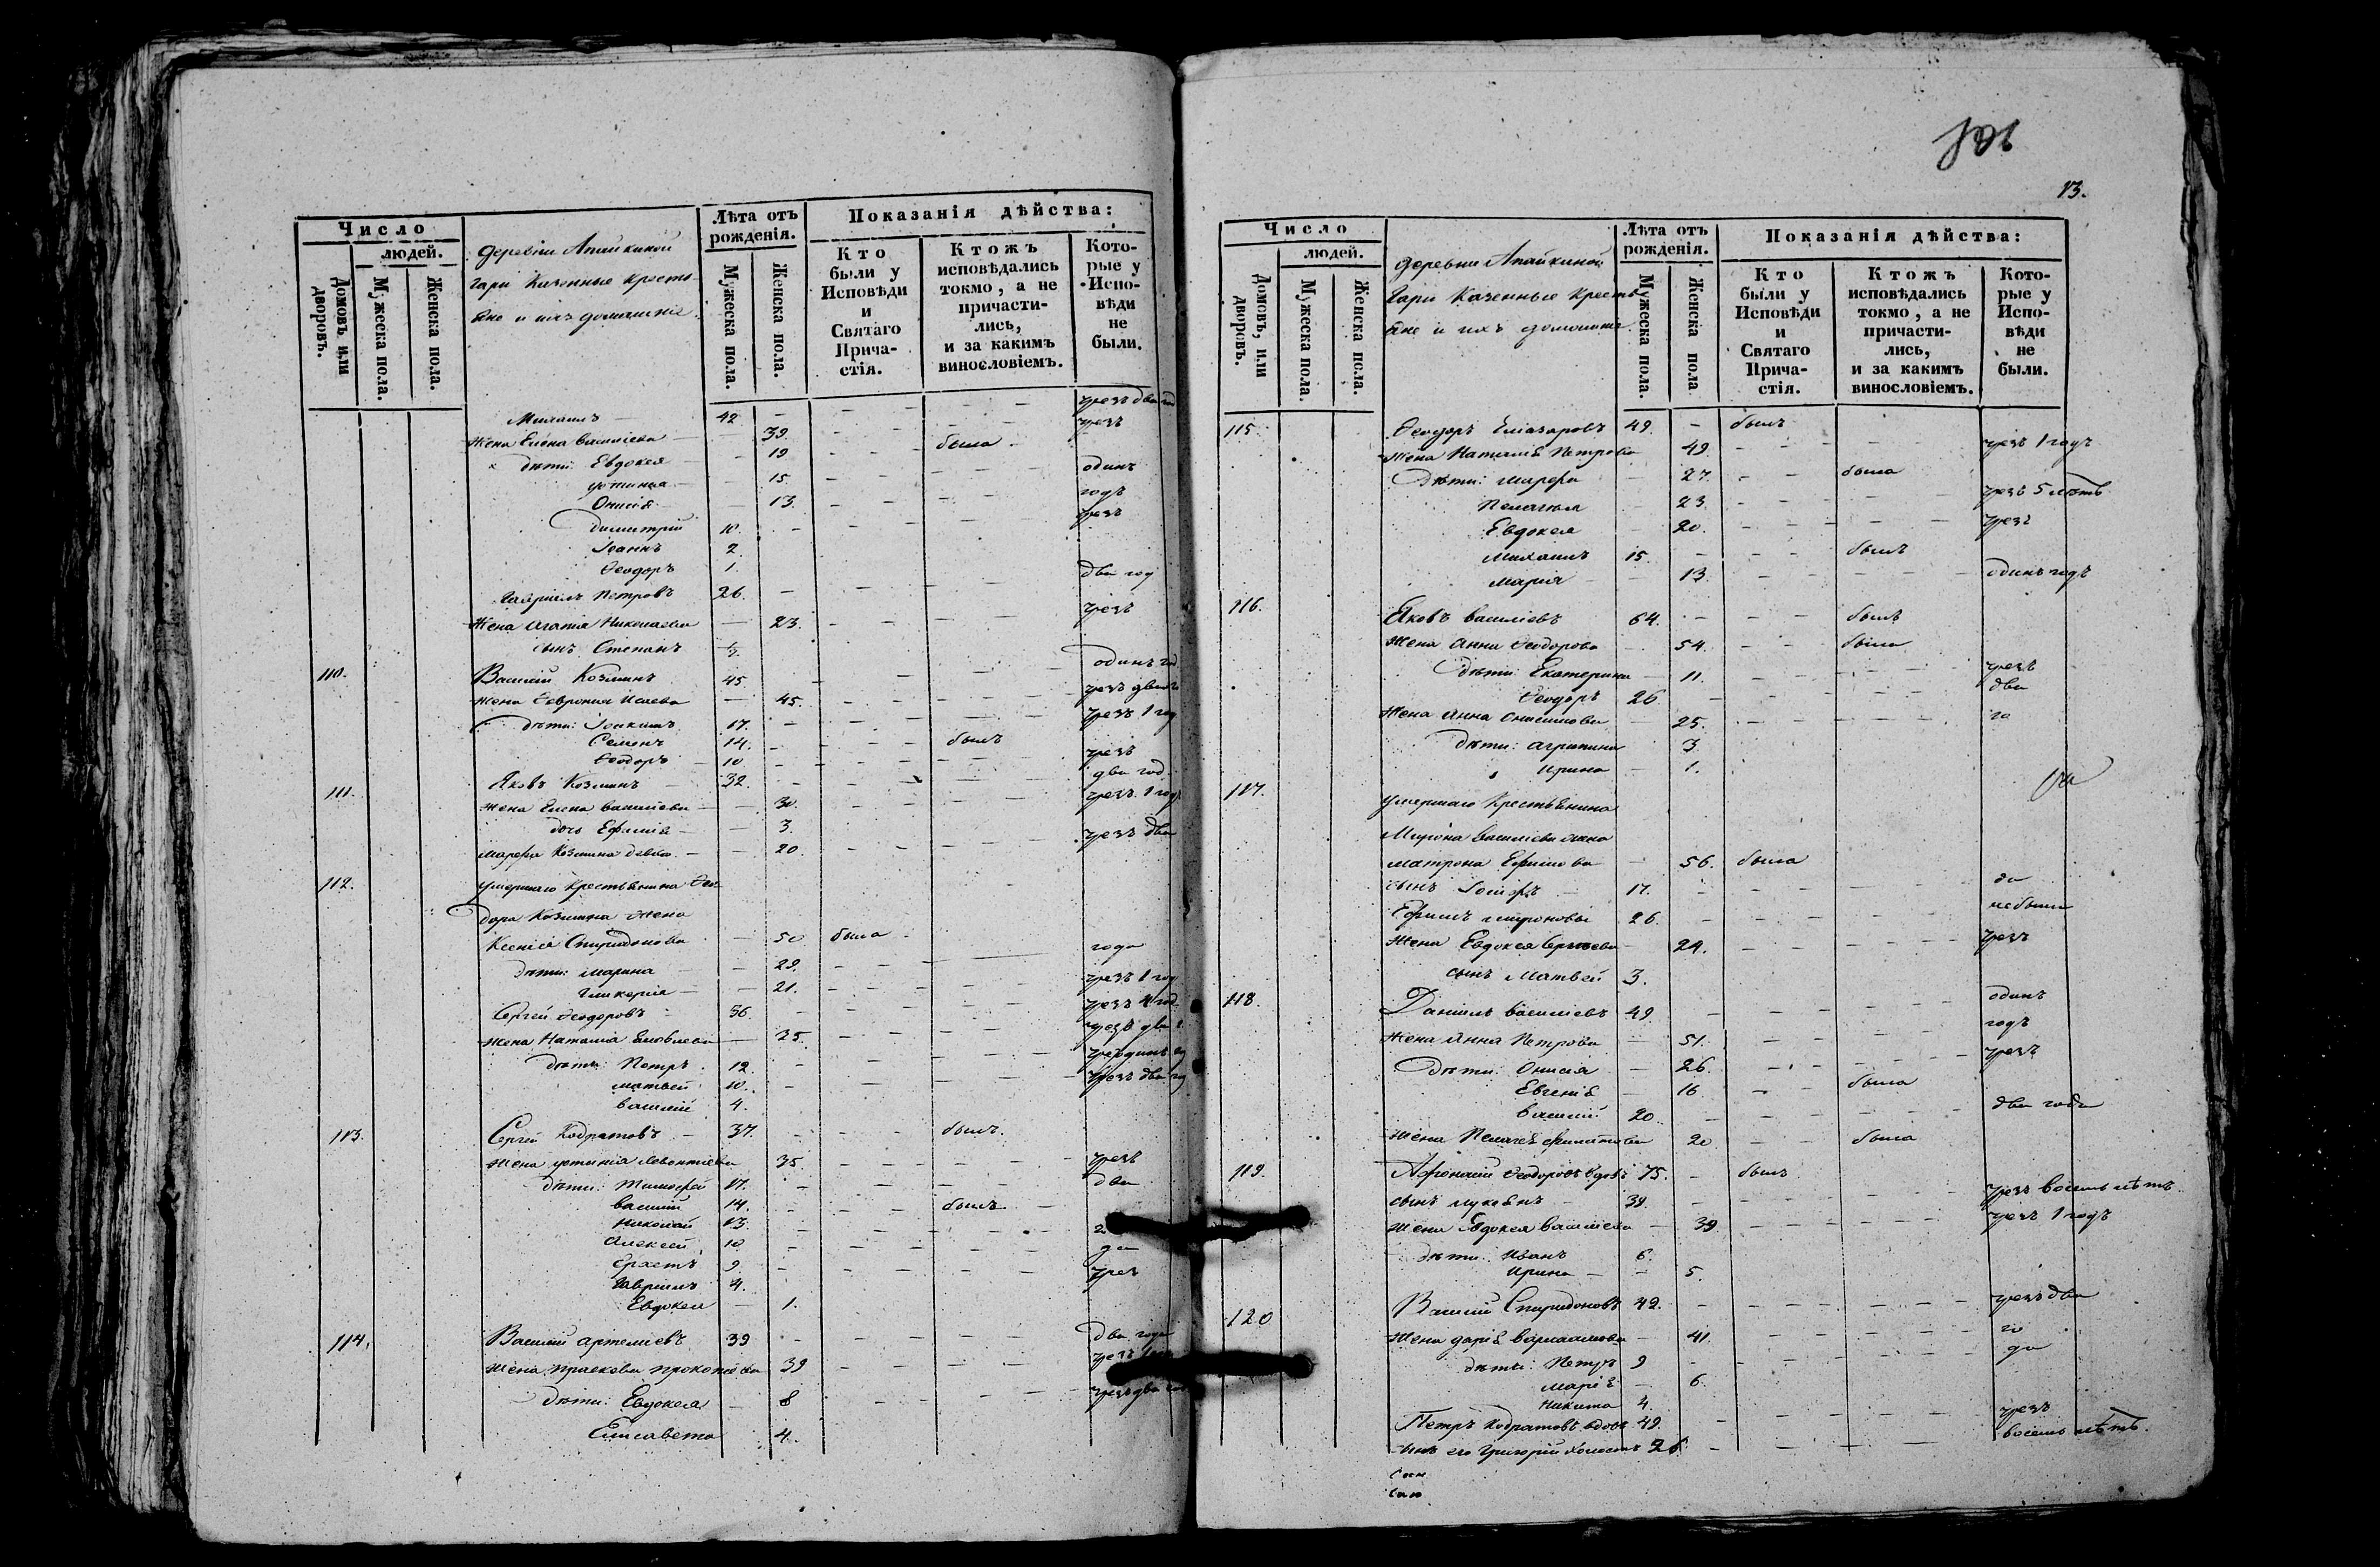 Число
людей.
Домовъ или дворовъ.
Мужеска пола
Женска пола.
деревни Апайкиной
гари Казенные кресть
яне и ихъ домашніе.
Лѣта отъ рожденія.
Мужеска пола.
Женска пола.
Показанія дѣйства:
Кто были у Исповѣди и Святаго Прича-стія.
Ктожъ исповѣдались токмо, а не причасти-лись, и за какимъ винословіемъ.
Кото-рые у Испо-вѣди не были.
Михаилъ 42 чрезъ два год
Жена Елена Васильева 39. чрезъ
дѣти: Евдокея 19 была
Устинья 15. одинъ
Онисія 13. годъ
Димитрій 10. чрезъ
Іоаннъ 2.
Ѳеодоръ 1.
Гавріилъ Петровъ 26. два год
Жена Агатія Николаева 23. чрезъ
сынъ Степанъ
110. Василій Козминъ 45 одинъ год
жена Ѳевронія Исаева 45. чрезъ два
дѣти: Іоакимъ 17. чрезъ 1 год
Семенъ 14. былъ
Ѳеодоръ 10 чрезъ
111. Яковъ Козминъ 32. два год
жена Елена Васильева 30. чрезъ 1 год
дочь Ефимія 3.
Марфа Козмина девка 20. чрезъ два
112. умершаго крестьянина Ѳео
дора Козмина жена
Ксенія Спиридонова 50 была
дѣти: Марина 29. года
Гликерія 21. чрезъ 1 год
Сергей Ѳеодоровъ 36. чрезъ год
жена Наталія Яковлева 35. чрезъ два
дѣти: Петръ 12
Матвей 10. чрезъ два
Василій 4.
113. Сергей Кодратовъ 37. былъ.
жена Устинія Левонтиева 35. чрезъ
дѣти: Тимофей 17. два
Василій 14. былъ
Николай 13.
Алексей 10 да
Ерхетъ 9. чрез
Гавріилъ 4.
Евдокея 1.
114. Василій Артемиевъ 39 два года
жена Праскева Прокопиева 39
дѣти: Евдокея 8 чрезъ два
Елисавета 4.
13.
Число
людей.
Домовъ, или дворовъ.
Мужеска пола.
Женска пола.
деревни Апайкиной
гари Казенные кресть
яне и ихъ домашніе
Лѣта отъ рожденія.
Мужеска пола.
Женска пола
Показанія дѣйства:
Кто были у Исповѣди и Святаго Прича-стія.
Ктожъ исповѣдались токмо, а не причасти-лись, и за какимъ винословіемъ.
Кото-рые у Испо-вѣди не были.
115. Ѳеодоръ Елиазаровъ 49. былъ
жена Наталія Петрова 49. чрезъ 1 годъ
дѣти: Марфа 27. была
Пелагея 23 чрезъ 5 лѣтъ
Евдокея 20. чрезъ
Михаилъ 15. былъ
Марія 13. одинъ годъ
116. Яковъ Васильевъ 64. былъ
жена Анна Ѳеодорова 54. была
дѣти: Екатерина 11. чрезъ
Ѳеодоръ 26 два
жена Анна Онисимова 25. го
дѣти: Агрипина 3.
Ирина 1.
117. умершаго крестьянина
Мирона Васильева жена
Матрона Ефимова 56. была
сынъ Іосифъ 17. да
Ефимъ Мироновъ 26. небыли
жена Евдокея Сергеева 24. чрезъ
сынъ Матвей 3.
118. Даніилъ Васильевъ 49. одинъ
жена Анна Петрова 51. годъ
дѣти: Онисія 26. чрезъ
Евгенія 16 была
Василій 20 два года
жена Пелагея Филипова 20 была
119. Афонасий Ѳеодоровъ вдовъ 75. былъ
сынъ Лукьянъ 39. чрезъ восемь лѣтъ
жена Евдокея Васильева 39. чрезъ 1 годъ
дѣти: Иванъ 6.
Ирина 5.
120 Василій Спиридоновъ 42. чрезъ два
жена Дарія Варлаамова 41. го
дѣти: Петръ 9 да
Марія 6.
Никита 4.
Петръ Кодратовъ вдовъ 49 чрезъ
сынъ его Григорій холостъ 26. восемь лѣтъ.